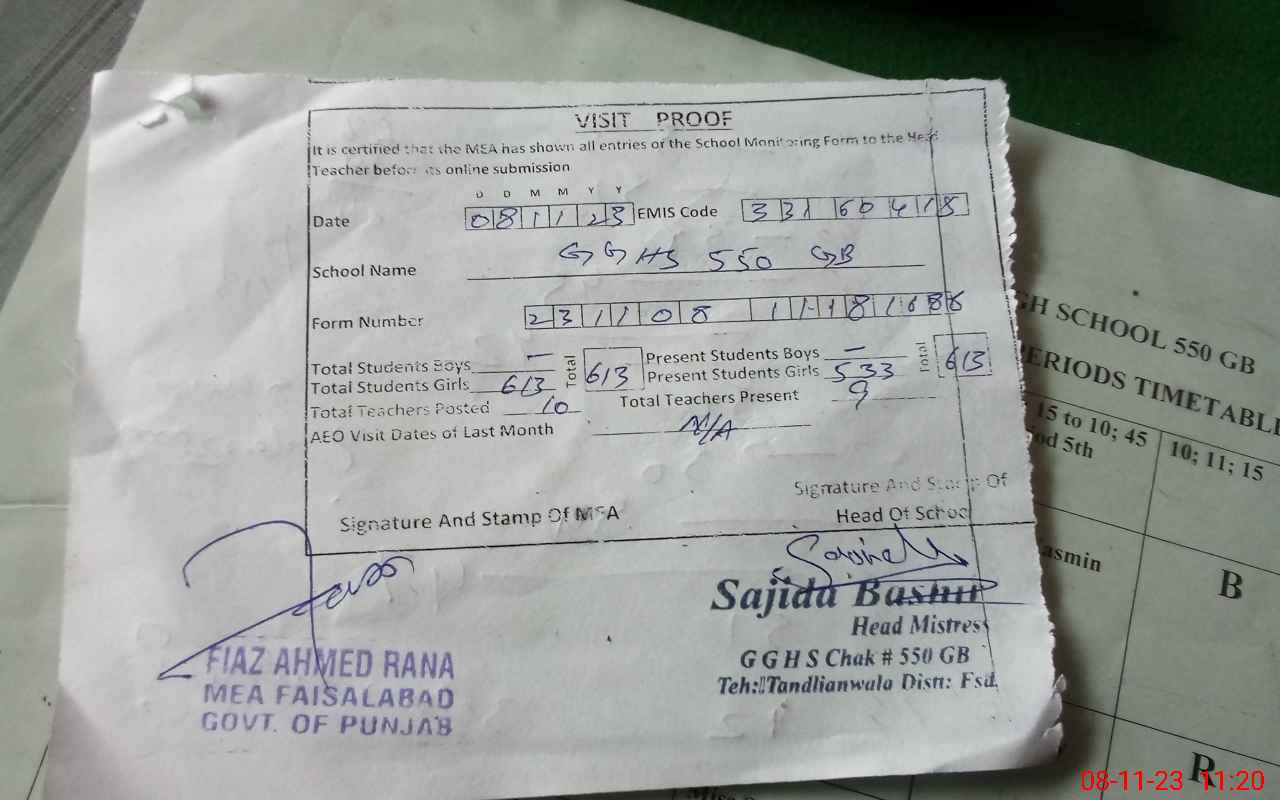 VISIT PROOF
It is certified that the MEA has shown all entries of the School Monitoring Form to the Head
Teacher before its online submission
D D M M Y Y
Date 081123 EMIS Code 33160418
School Name GGHS 550 GB
Form Number
Total Students Boys — Total 613 Present Students Boys — Total 613
Total Students Girls 613 Present Students Girls 533
Total Teachers Posted 10 Total Teachers Present 9
AEO Visit Dates of Last Month N/A
Signature And Stamp Of MEA
Signature And Stamp Of
Head Of School
FIAZ AHMED RANA
MEA FAISALABAD
GOVT. OF PUNJAB
Sajida Bashir
Head Mistress
G G H S Chak # 550 GB
Teh: Tandlianwala Distt: Fsd.
GH SCHOOL 550 GB
PERIODS TIMETABLE
15 to 10; 45
5th
10; 11; 15
asmin
B
R
08-11-23 11:20